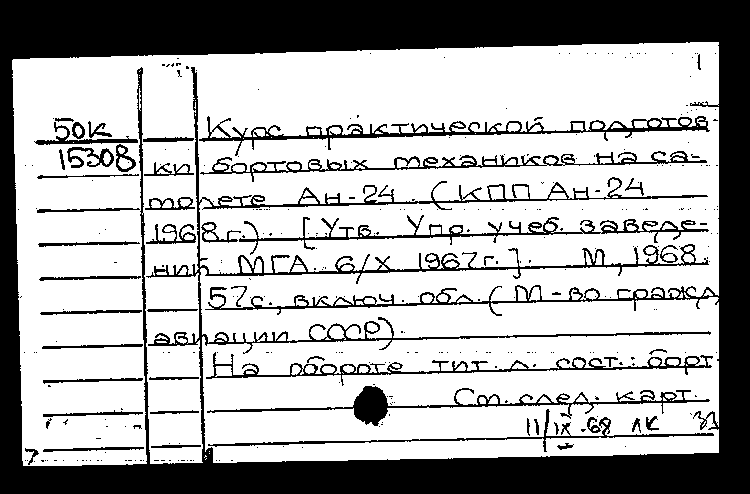 1
50к Курс практической подготов-
15308 ки бортовых механиков на са-
молете Ан-24. (КПП Ан-24
1968 г.). [Утв. Упр. учеб. заведе-
ний МГА 6/X 1967г.]. М., 1968.
57с., включ. обл. (М-во гражд.
авиации СССР).
На обороте тит. л. сост.: борт.
См. след. карт.
11/IX.68 ЛК